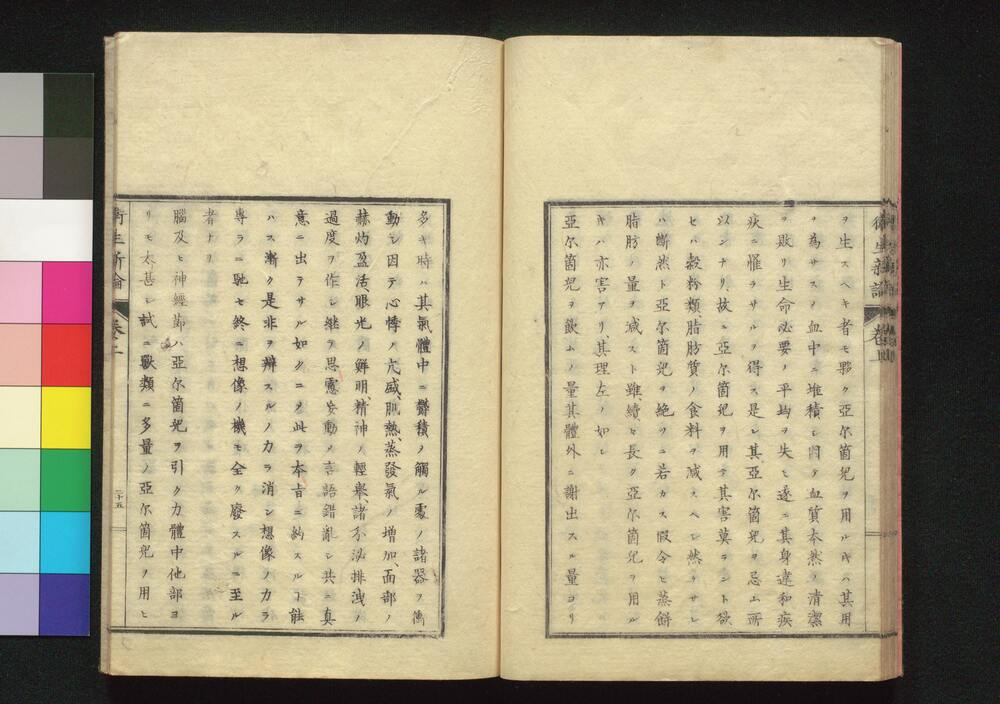 ヲ生スヘキ者モ夥ク亞尓箇兒ヲ用ルキハ其用
ヲ為サスメ血中ニ堆積シ因テ血質本然ノ清潔
ヲ敗リ生命必要ノ平均ヲ失ヒ遂ニ其身違和疾
疾ニ罹ラサルヲ得ス是レ其亞尓箇兒ヲ忌ム所
以ンナリ、故ニ亞尓箇兒ヲ用テ其害莫ラント欲
セハ穀粉類、脂肪質ノ食料ヲ減スヘシ然ラサレ
ハ断然ト亞尓箇兒ヲ絶ツニ若カス假令ヒ蒸餅
脂肪ノ量ヲ減スト雖、續ヒ長ク亞尓箇兒ヲ用ル
キハ亦害アリ、其理左ノ如シ
亞尓箇兒ヲ飲ムノ量其體外ニ謝出スル量ヨリ
多キ時ハ其氣體中ニ欝積ノ觸ル處ノ諸器ヲ衝
動シ因テ心悸ノ亢盛、肌熱、蒸發氣ノ増加、面部ノ
赫灼盈活、眼光ノ鮮明、精神ノ輕擧、諸分泌排洩ノ
過度ヲ作シ継テ思慮妄動メ言語錯亂シ共ニ真
意ニ出ラサル如クニメ此ヲ本旨ニ納スルト能
ハス漸ク是非ヲ辨スルノ力ラ消シ想像ノ力ラ
専ラニ馳セ終ニ想像ノ機モ全ク廢スルニ至ル
者トリ
腦及ヒ神經節ハ亞尓箇兒ヲ引ク力體中他部ヨ
リモ太甚シ試ニ獸類ニ多量ノ亞尓箇兒ヲ用ヒ
衛生新論
卷二
二十五